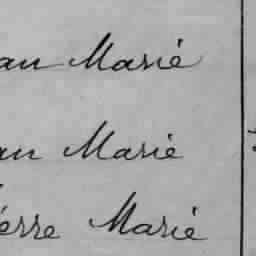 an Marié
an Marié
ierre Marié